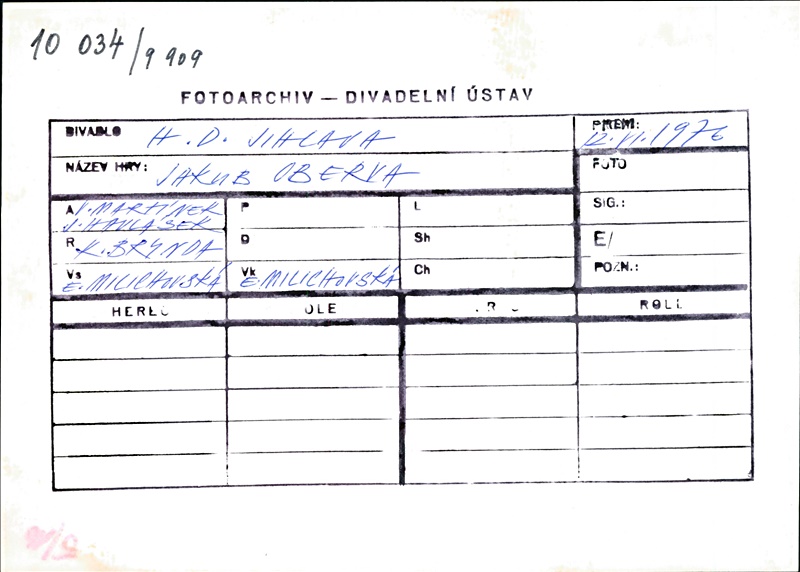 10 034/9 909
FOTOARCHIV — DIVADELNÍ ÚSTAV
DIVADLO H.D. JIHLAVA
PREM: 12.VI.1976
NÁZEV HRY: JAKUB OBERVA
FOTO
A J. MARTÍNEK
J. HAVLÁSEK
P
L
SIG.:
R K. BRYNDA
D
Sh
E/
Vs E. MILICHOVSKÁ
Vk E. MILICHOVSKÁ
Ch
POZN.:
HEREC
ROLL
5/10